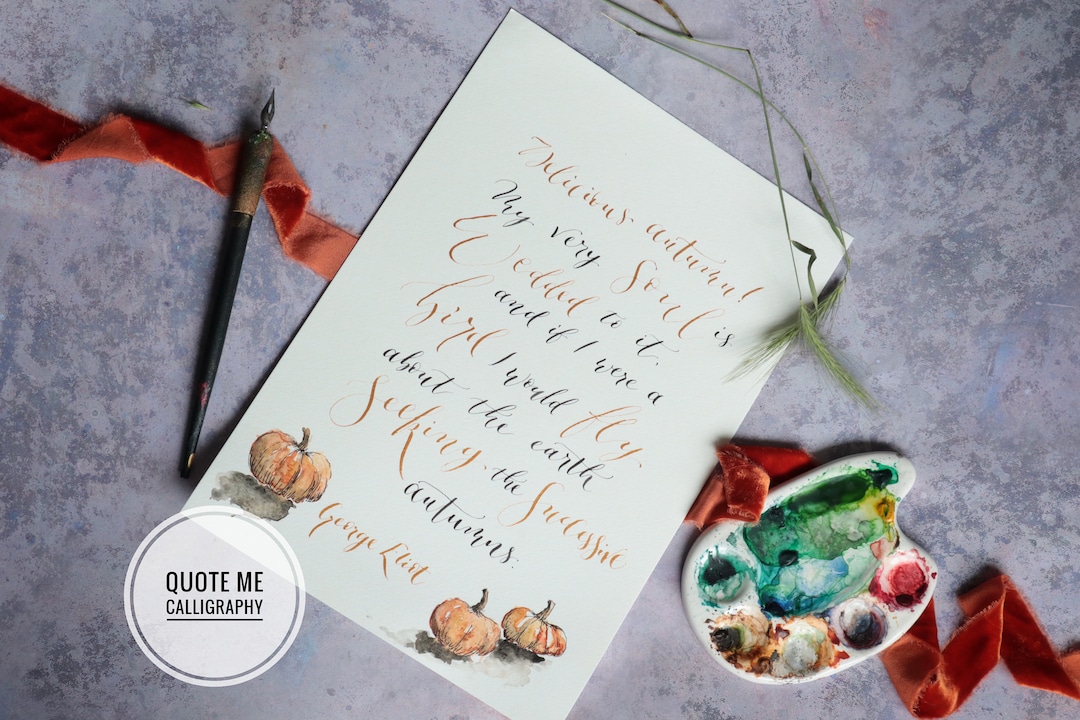 Delicious autumn!
My very Soul is
Wedded to it,
and if I were a
bird I would fly
about the earth
Seeking the Successive
autumns.
George Eliot
QUOTE ME
CALLIGRAPHY